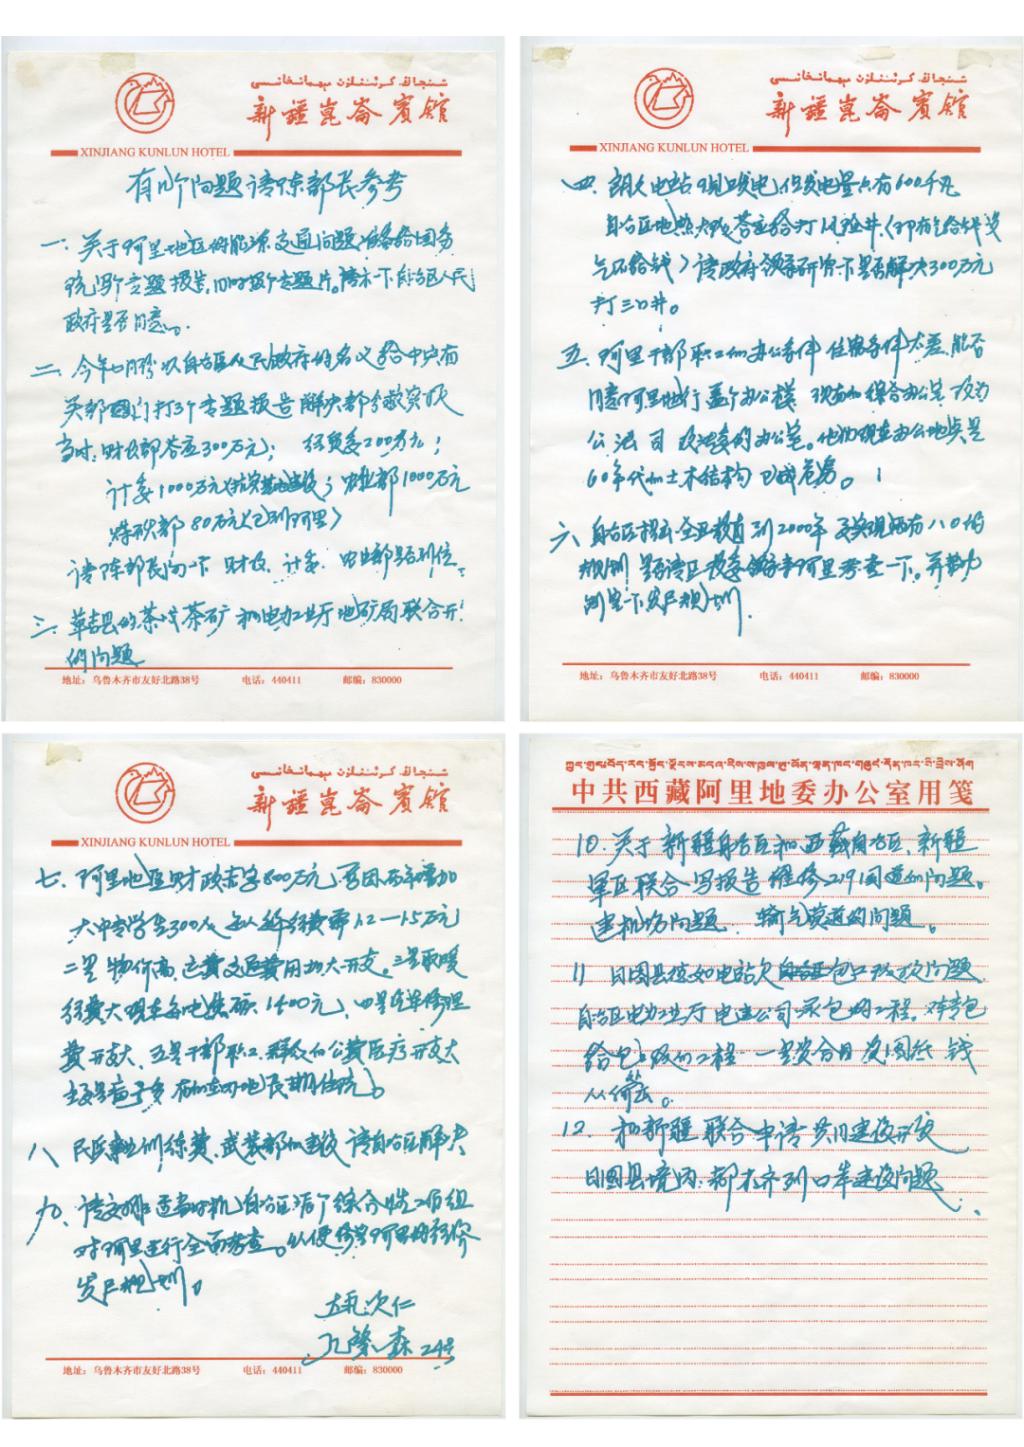 شىنجاڭ كۇئېنلۇن مېھمانخانىسى
新疆崑崙賓舘
XINJIANG KUNLUN HOTEL
有几个问题请陈部长参考
一、关于阿里地区的能源交通问题,准备给国务
院写个专题报告,同时报个专题片。请示一下自治区人民
政府是否同意。
二、今年七月份以自治区人民政府的名义给中央有
关部门打了个专题报告 解决部分救灾款
当时:财政部答应300万元; 经贸委200万元;
计委1000万元(抗灾基地建设); 电业部1000万元
煤炭部80万元(已到阿里)
请陈部长问一下 财政、计委、电业部是否到位。
三、革吉县的茶卡茶矿 和电力工业厅 地矿局联合开
的问题
地址:乌鲁木齐市友好北路38号 电话:440411 邮编:830000
新疆崑崙賓舘
XINJIANG KUNLUN HOTEL
四、朗久电站现发电,但发电量只有600千瓦
自治区地热大队答应给打风险井(即有气给钱没
气不给钱)请政府领导研究一下是否解决300万元
打三口井。
五、阿里干部职工的办公条件 住宿条件太差,能否
同意阿里地行盖个办公楼 现有的综合办公室 改为
公 法 司 政法委的办公室。他们现在办公地点是
60年代的土木结构 已成危房。
六、自治区提出全区教育到2000年 要实现两有八〇的
规划 是否请区教委领导来阿里考查一下。并帮助
制定一下发展规划。
地址:乌鲁木齐市友好北路38号 电话:440411 邮编:830000
新疆崑崙賓舘
XINJIANG KUNLUN HOTEL
七、阿里地区财政赤字800万元,原因两年增加
大中专学生300人 每人年经费需1.2—1.5万元
二是物价高,运费交通费用加大开支。三是取暖
经费大现在每吨焦碳1400元,四是汽车修理
费开支大,五是干部职工、群众的公费医疗开支大
主要是病号多 有的在内地长期住院。
八、民兵训练费,武装部的建设 请自治区解决
九、请安排适当时机 自治区派个综合性工作组
对阿里进行全面考查。以便修定阿里的经济
发展规划。
次仁
孔繁森 24号
地址:乌鲁木齐市友好北路38号 电话:440411 邮编:830000
中共西藏阿里地委办公室用笺
10、关于新疆自治区和西藏自治区、新疆
军区联合写报告 维修219国道的问题。
建机场问题、输气管道的问题。
11、日土县班公如电站 包工改议问题
自治区电力工业厅 电建公司承包的工程。
给包工改的工程 一是 图纸 钱
从何出。
12、和新疆联合申请 共同建设开发
日土县境内:都木齐列口岸建设问题